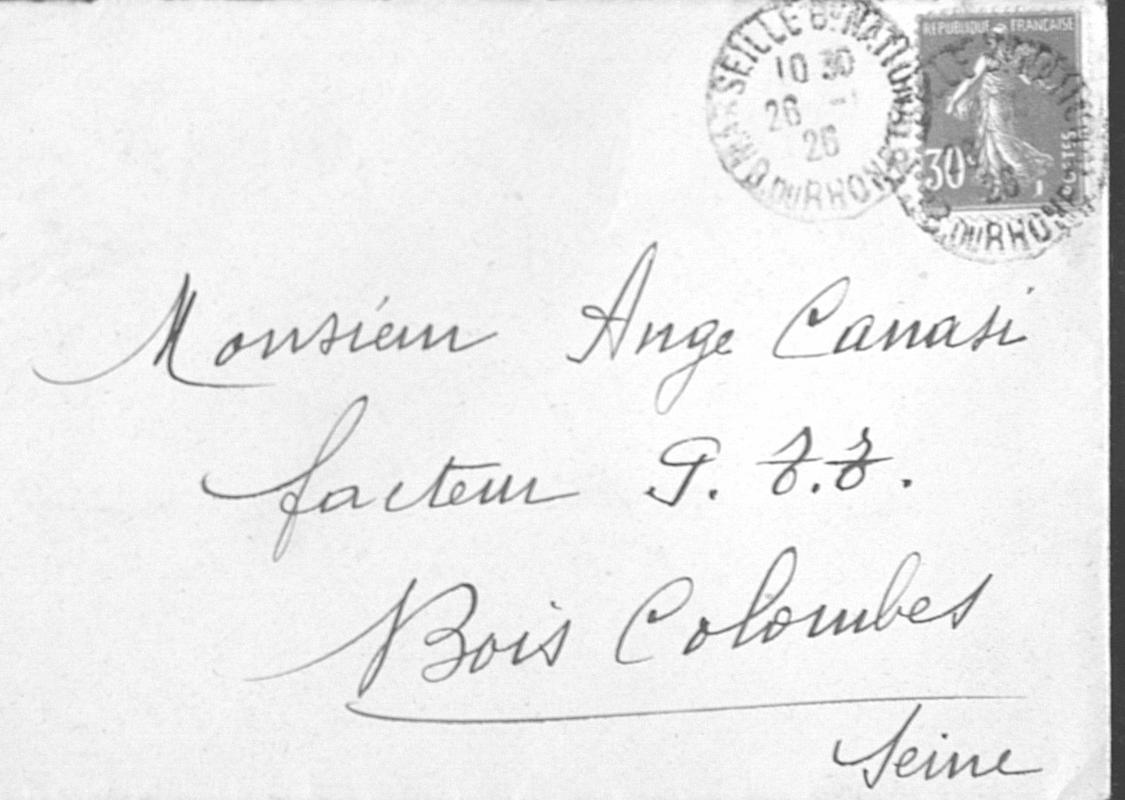 MARSEILLE Bd NATIONAL
10 30
26 -1
26
B. DU RHONE
REPUBLIQUE FRANÇAISE
30c
POSTES
DU RHONE
Monsieur Ange Canasi
facteur P.T.T.
Bois Colombes
Seine